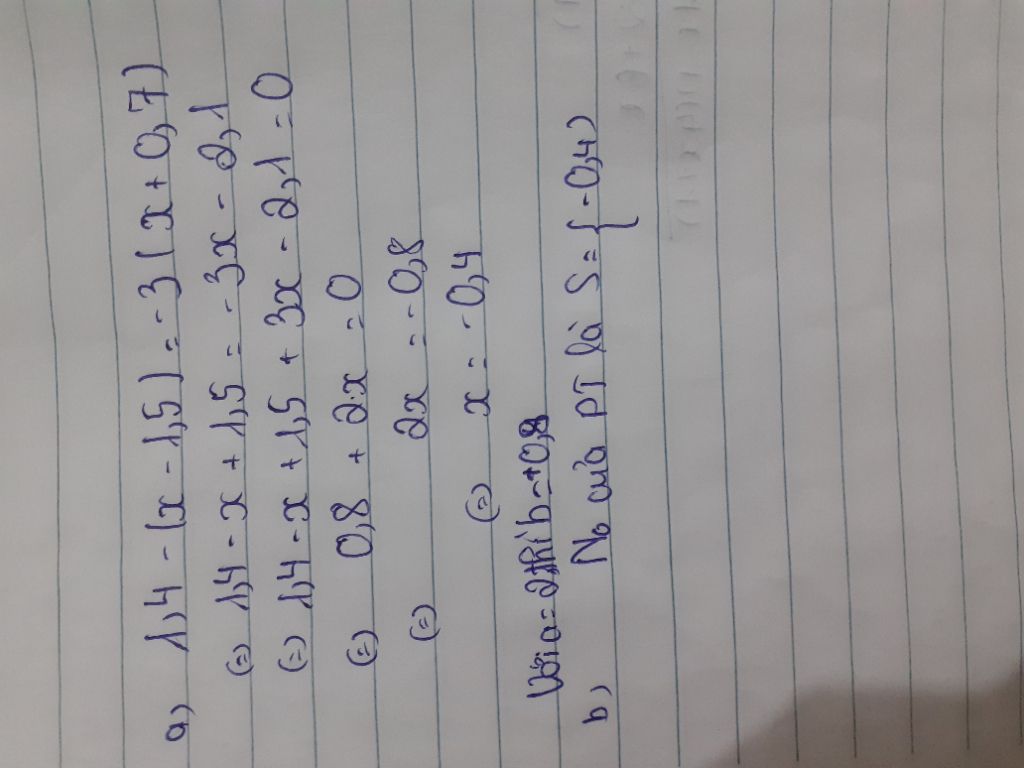 a) 1,4 - (x - 1,5) = -3 (x + 0,7)
(=) 1,4 - x + 1,5 = -3x - 2,1
(=) 1,4 - x + 1,5 + 3x - 2,1 = 0
(=) 0,8 + 2x = 0
(=) 2x = -0,8
(=) x = -0,4
Với a = 2 b = +0,8
b) No của PT là S = { -0,4)